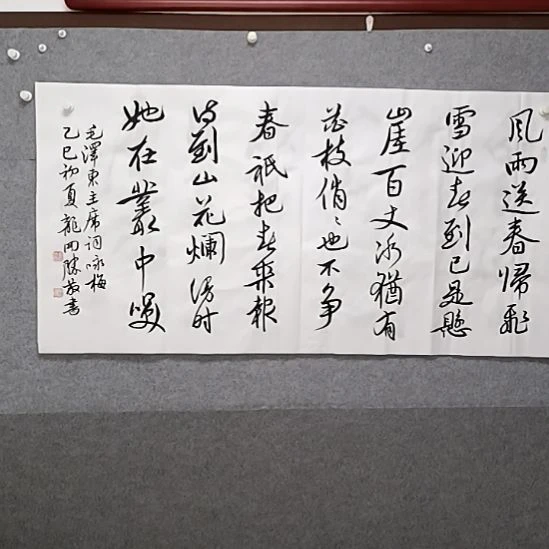 风雨送春歸飛
雪迎春到已是懸
崖百丈冰猶有
花枝俏々也不争
春祇把春來報
待到山花爛漫时
她在叢中笑
毛澤東主席词咏梅
乙巳初夏龍勝書